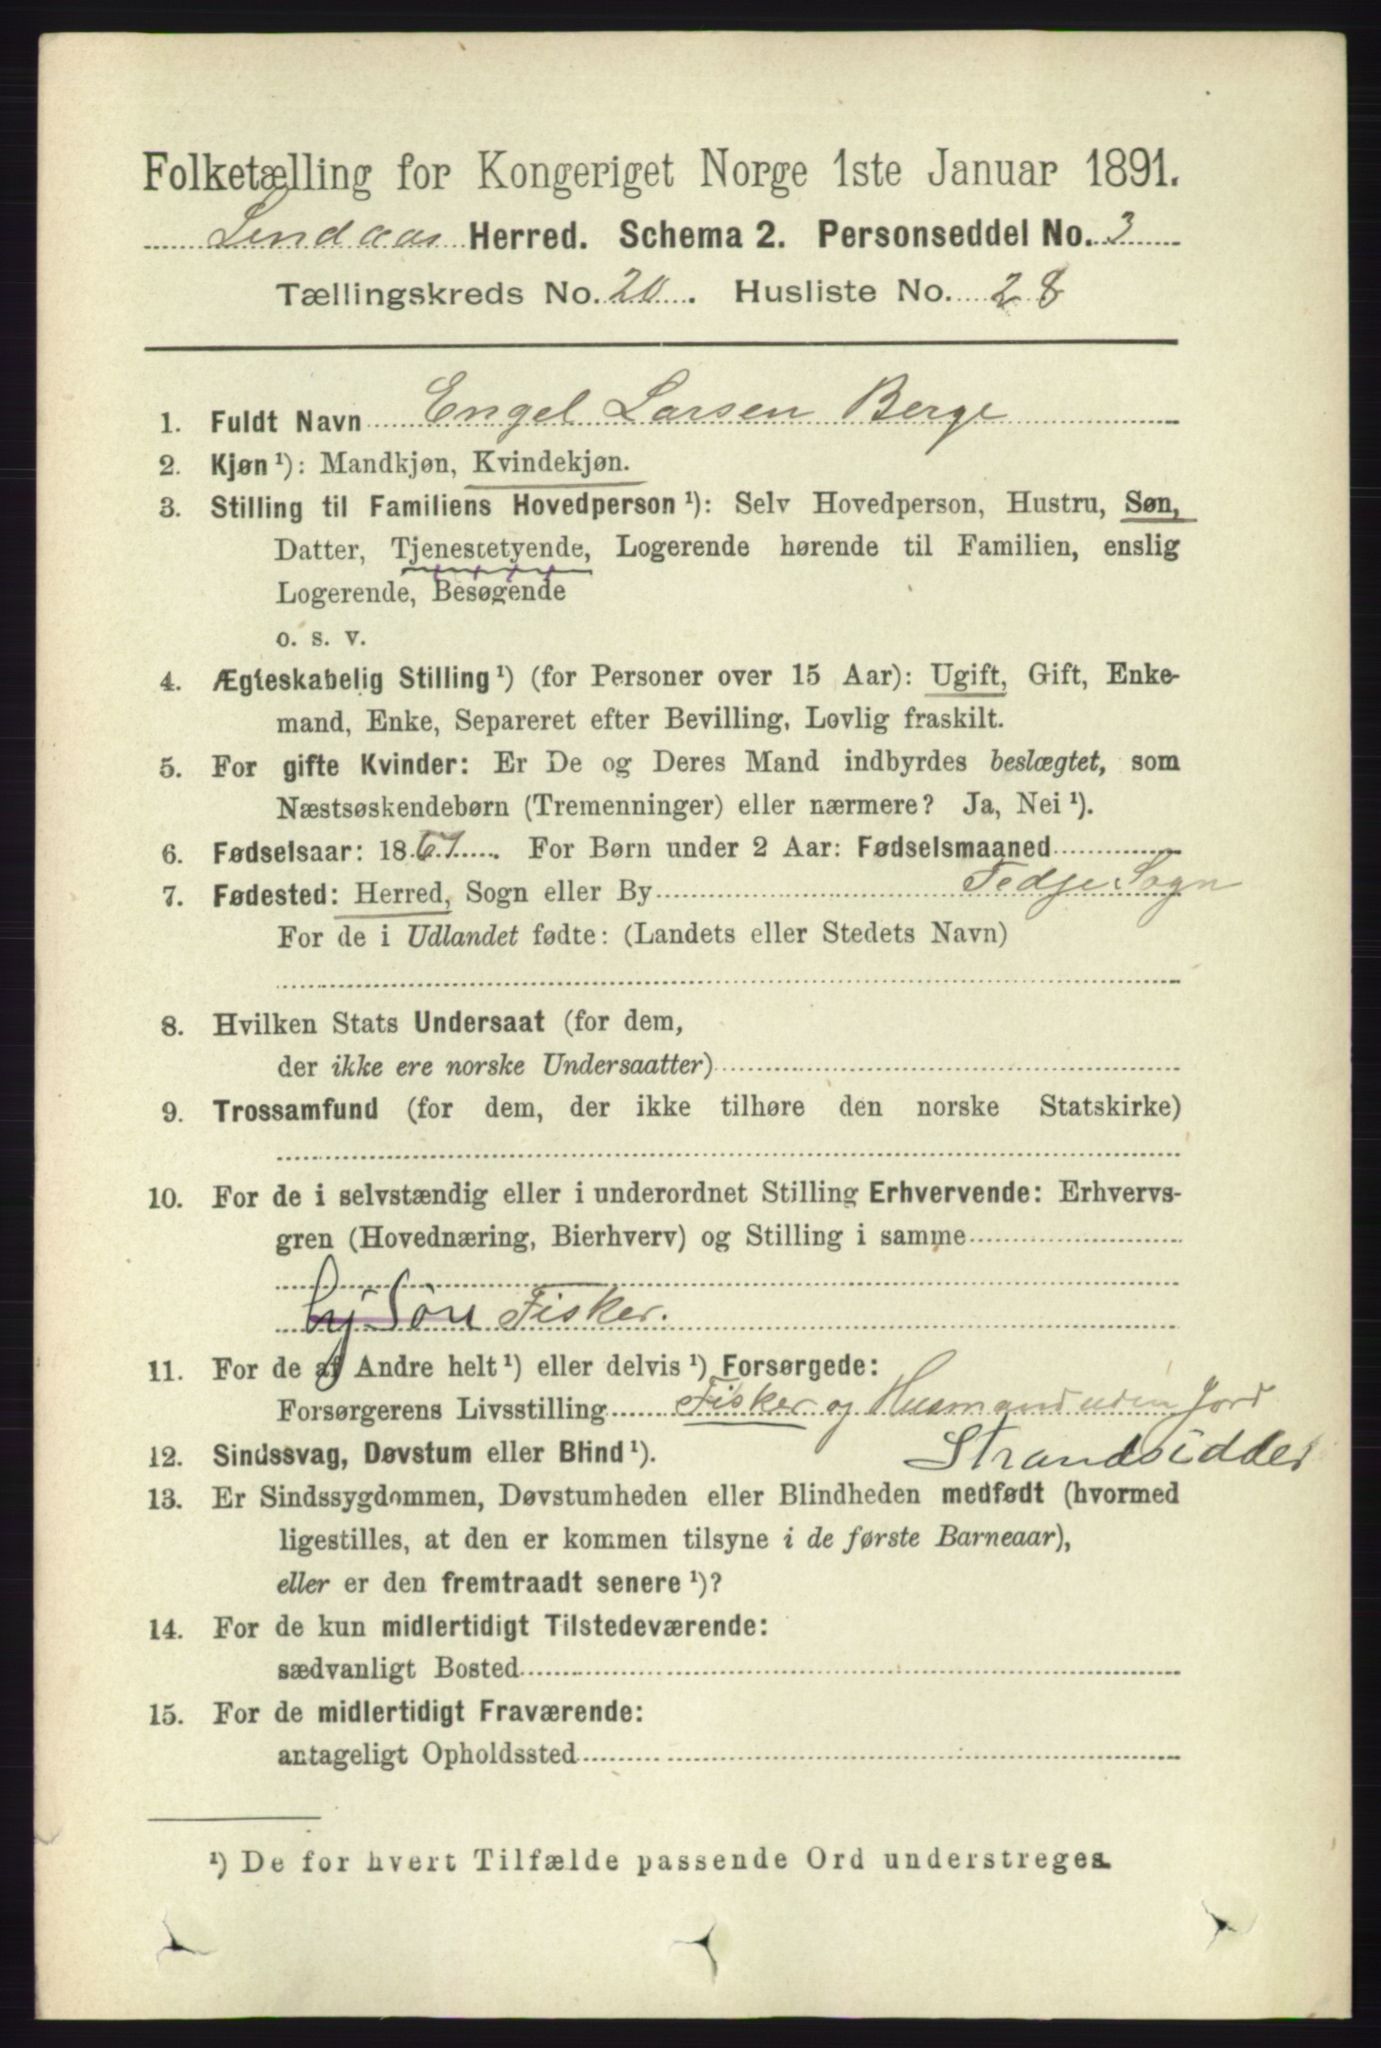 Folketælling for Kongeriget Norge 1ste Januar 1891.
Lindaas Herred. Schema 2. Personseddel No. 3
Tællingskreds No. 20. Husliste No. 28
1. Fuldt Navn Engel Larsen Berge
2. Kjøn ¹): Mandkjøn, Kvindekjøn.
3. Stilling til Familiens Hovedperson ¹): Selv Hovedperson, Hustru, Søn,
Datter, Tjenestetyende, Logerende hørende til Familien, enslig
Logerende, Besøgende
o. s. v.
4. Ægteskabelig Stilling ¹) (for Personer over 15 Aar): Ugift, Gift, Enke-
mand, Enke, Separeret efter Bevilling, Lovlig fraskilt.
5. For gifte Kvinder: Er De og Deres Mand indbyrdes beslægtet, som
Næstsøskendebørn (Tremenninger) eller nærmere? Ja, Nei ¹).
6. Fødselsaar: 1867. For Børn under 2 Aar: Fødselsmaaned
7. Fødested: Herred, Sogn eller By Fedje Sogn
For de i Udlandet fødte: (Landets eller Stedets Navn)
8. Hvilken Stats Undersaat (for dem,
der ikke ere norske Undersaatter)
9. Trossamfund (for dem, der ikke tilhøre den norske Statskirke)
10. For de i selvstændig eller i underordnet Stilling Erhvervende: Erhvervs-
gren (Hovednæring, Bierhverv) og Stilling i samme
Søn Fisker.
11. For de af Andre helt ¹) eller delvis ¹) Forsørgede:
Forsørgerens Livsstilling Fisker og Husmand uden Jord
12. Sindssvag, Døvstum eller Blind ¹). Strandsidder
13. Er Sindssygdommen, Døvstumheden eller Blindheden medfødt (hvormed
ligestilles, at den er kommen tilsyne i de første Barneaar),
eller er den fremtraadt senere ¹)?
14. For de kun midlertidigt Tilstedeværende:
sædvanligt Bosted
15. For de midlertidigt Fraværende:
antageligt Opholdssted
¹) De for hvert Tilfælde passende Ord understreges.